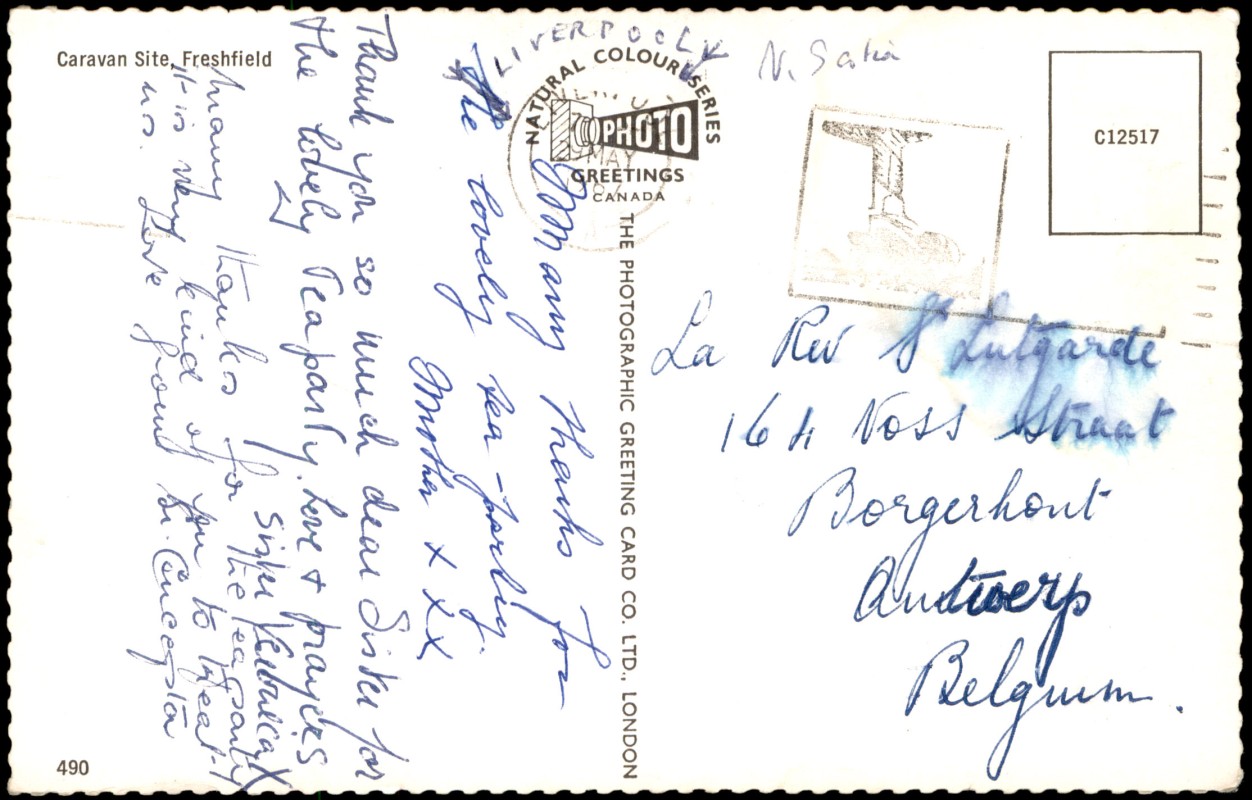 Caravan Site, Freshfield
LIVERPOOL
NATURAL COLOUR SERIES
PHOTO
GREETINGS
CANADA
MAY
C12517
Many thanks for
the lovely tea-party.
Mother x x x
Thank you so much dear Sister for
the lovely Tea party. Love + prayers
Sister
Many thanks for the tea party
it is very kind of you to treat
us. Love from Sr.
THE PHOTOGRAPHIC GREETING CARD CO. LTD., LONDON
La Rev Sr Lutgarde
164 Voss Straat
Borgerhout
Antwerp
Belgium.
490